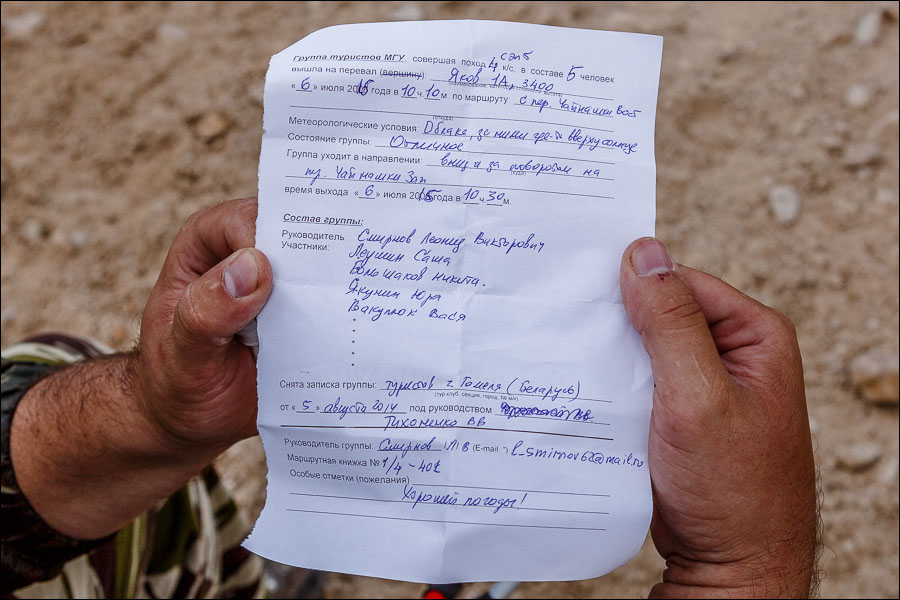 Группа туристов МГУ, совершая поход 4 с эл 5 к/с, в составе 5 человек
вышла на перевал (вершину): Яков 1А, 3400
« 6 » июля 2015 года в 10 ч 10 м. по маршруту с пер. Чатнашки Вост
(откуда)
Метеорологические условия: Облака, за ними где-то вверху солнце
Состояние группы: Отличное
Группа уходит в направлении: вниз и за поворотом на
(куда)
пер. Чатнашки Зап
время выхода « 6 » июля 2015 года в 10 ч 30 м.
Состав группы:
Руководитель: Смирнов Леонид Викторович
Участники: Леушин Саша
Большаков Никита.
Якунин Юра
Вакулюк Вася
Снята записка группы: туристов г. Гомеля (Беларусь)
(тур.клуб, секция, город, № м/к)
от « 5 » августа 2014 под руководством ВВ.
Тихоненко ВВ
Руководитель группы: Смирнов /ЛВ (E-mail *) l_smirnov62@mail.ru
Маршрутная книжка № 1/4-401
Особые отметки (пожелания)
Хорошей погоды!